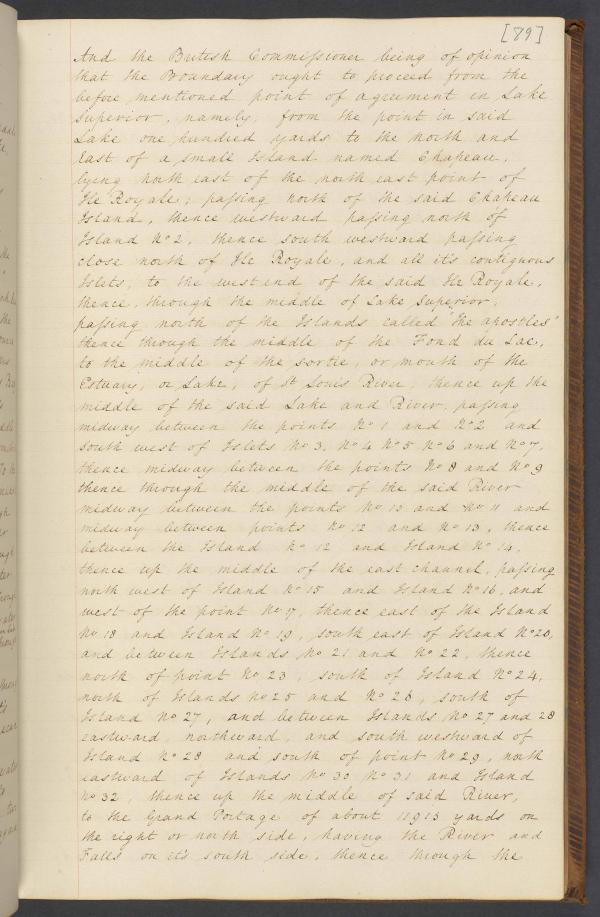 [89]
And the British Commissioner being of opinion
that the Boundary ought to proceed from the
before mentioned point of agreement in Lake
Superior, namely, from the point in said
Lake one hundred yards to the north and
East of a small Island named Chapeau,
lying north east of the north east point of
Ile Royale; passing north of the said Chapeau
Island, thence westward passing north of
Island No 2, thence south westward passing
close north of Ile Royale, and all it's contiguous
Islets, to the west end of the said Ile Royale,
thence, through the middle of Lake Superior,
passing north of the Islands called "The apostles"
thence through the middle of the Fond du Lac,
to the middle of the sortie, or mouth of the
Estuary, or Lake, of St Louis River, thence up the
middle of the said Lake and River, passing
midway between the points No 1 and No 2 and
south west of Islets No 3, No 4 No 5 No 6 and No 7,
thence midway between the points No 8 and No 9
thence through the middle of the said River
midway between the points No 10 and No 11 and
midway between points No 12 and No 13, thence
between the Island No 12 and Island No 14,
thence up the middle of the east channel, passing
north west of Island No 15 and Island No 16, and
west of the point No 17, thence east of the Island
No 18 and Island No 19, south east of Island No 20,
and between Islands No 21 and No 22, thence
north of point No 23, south of Island No 24,
north of Islands No 25 and No 26, south of
Island No 27, and between Islands No 27 and 28
eastward, northward, and south westward of
Island No 28 and south of point No 29, north
eastward of Islands No 30 No 31 and Island
No 32, thence up the middle of said River,
to the Grand Portage of about 11913 yards on
the right or north side, having the River and
Falls on it's south side, thence through the